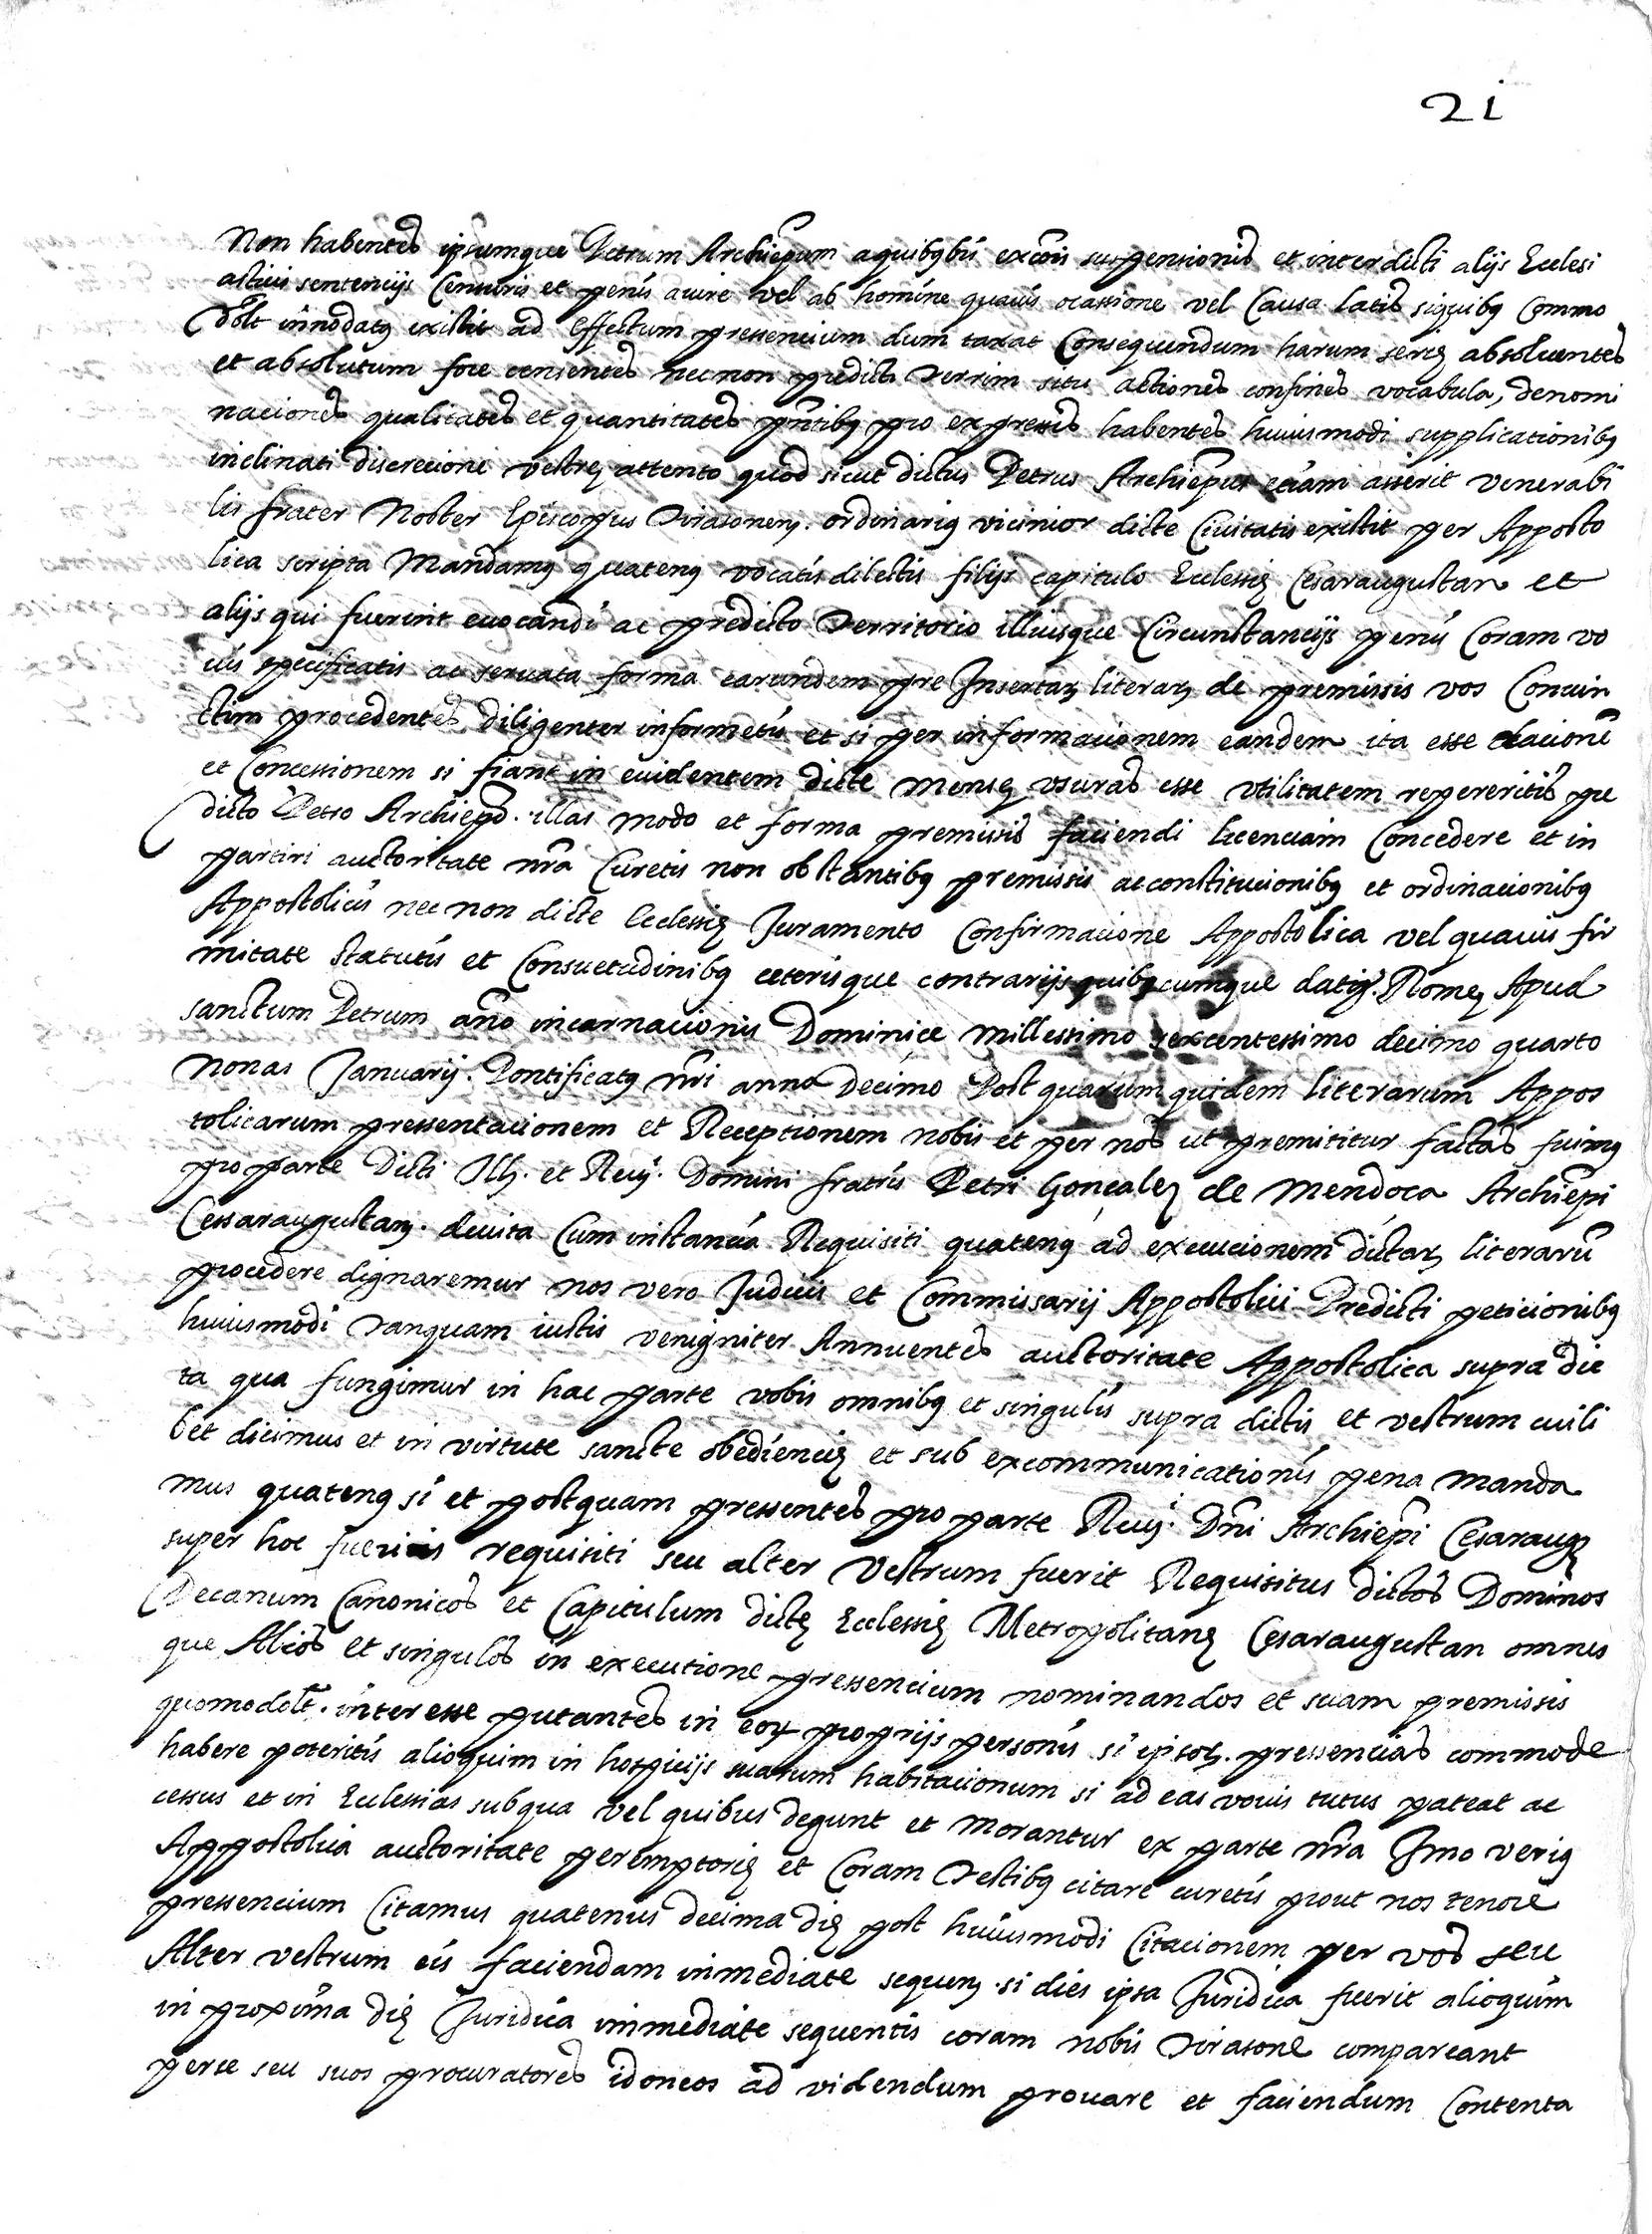 21
Non habentes ipsumque Petrum Archiepum aquibusbis excõis suspensionis et interdicti alijs Ecclesi
asticis sentencijs Censuris et penis aiure vel ab homine quauis ocassione vel Causa latis siquibus Commo
dolt innodatus existit ad effectum pressencium dum taxat Consequendum harum serię absoluentes
et absolutum fore censentes necnon predicti Territorii situ actiones confines vocabula, denomi
naciones qualitates et quantitates pñtibus pro expressis habentes huiusmodi supplicationibus
inclinati discrecioni vestrę attento quod sicut dictus Petrus Archiepus etiam asserit venerabi
lis frater Noster Episcopus Tirasonens. ordinarius vicinior dicte Ciuitatis existit per Apposto
lica scripta Mandamus quatenus vocatis dilectis filijs capitulo Eclessię Cesaraugustan et
alijs qui fuerint euocandi ac predicto Territorio illiusque Circunstancijs penis Coram vo
uis specificatis ac seruata forma earundem pre Insertarum literarum de premissis vos Coniun
ctim procedentes diligenter informetis et si per informacionem eandem ita esse elacionē
et Concessionem si fiant in euidentem dicte Mensę vsuras esse vtilitatem repereritis pre
dicto Petro Archiepo. illas modo et forma premissis faciendi licenciam Concedere et in
partiri auctoritate nr̃a Curetis non obstantibus premissis ac constitucionibus et ordinacionibus
Appostolicis nec non dicte Ecclessię Juramento Confirmacione Appostolica vel quauis fir
mitate statutis et Consuetudinibus ceterisque contrarijs quibuscumque datis. Romę Apud
sanctum Petrum año incarnacionis Dominice Millessimo sexcentessimo decimo quarto
Nonas Januarij. Pontificatus nr̃i anno Decimo Post quarum quidem literarum Appos
tolicarum pressentacionem et Receptionem nobis et per nos ut premititur factas fuimus
pro parte Dicti Ill. et Reu. Domini fratris Petri Gonçalez de Mendoca Archiepi
Cessaraugustan. deuita Cum instancia Requisiti quatenus ad execucionem dictarum literarũ
procedere dignaremur nos vero Judicis et Commissarij Appostolici Predicti peticionibus
huiusmodi Tanquam iustis venigniter Annuentes auctoritate Appostolica supra dic
ta qua fungimur in hac parte vobis omnibus et singulis supra dictis et vestrum cuili
bet dicimus et in virtute sancte obediencię et sub excommunicationis pena manda
mus quatenus si et postquam pressentes pro parte Reu. Dñi Archiepi Cesaraug
super hoc fueritis requisiti seu alter vestrum fuerit Requisitus dictos Dominos
Decanum Canonicos et Capitulum dictę Ecclessię Metropolitanę Cesaraugustan omnes
que Alios et singulos in executione pressencium nominandos et suam premissis
quomodolt. interesse putantes in eorum proprijs personis si ipsorum. pressencias commode
habere poteritis alioquim in hospicijs suarum habitacionum si ad eas vouis tutus pateat ac
cessus et in Ecclessias subqua vel quibus degunt et morantur ex parte nr̃a Imo verius
Appostolica auctoritate peremptorię et Coram Testibus citare curetis prout nos tenore
pressencium Citamus quatenus decima dię post huiusmodi Citacionem per vos seu
Alter vestrum eis faciendam inmediate sequens. si dies ipsa Juridica fuerit alioquim
in proxima dię Juridica inmediate sequentis coram nobis Tirasone compareant
perse seu suos procuratores idoneos ad videndum prouare et faciendum Contenta